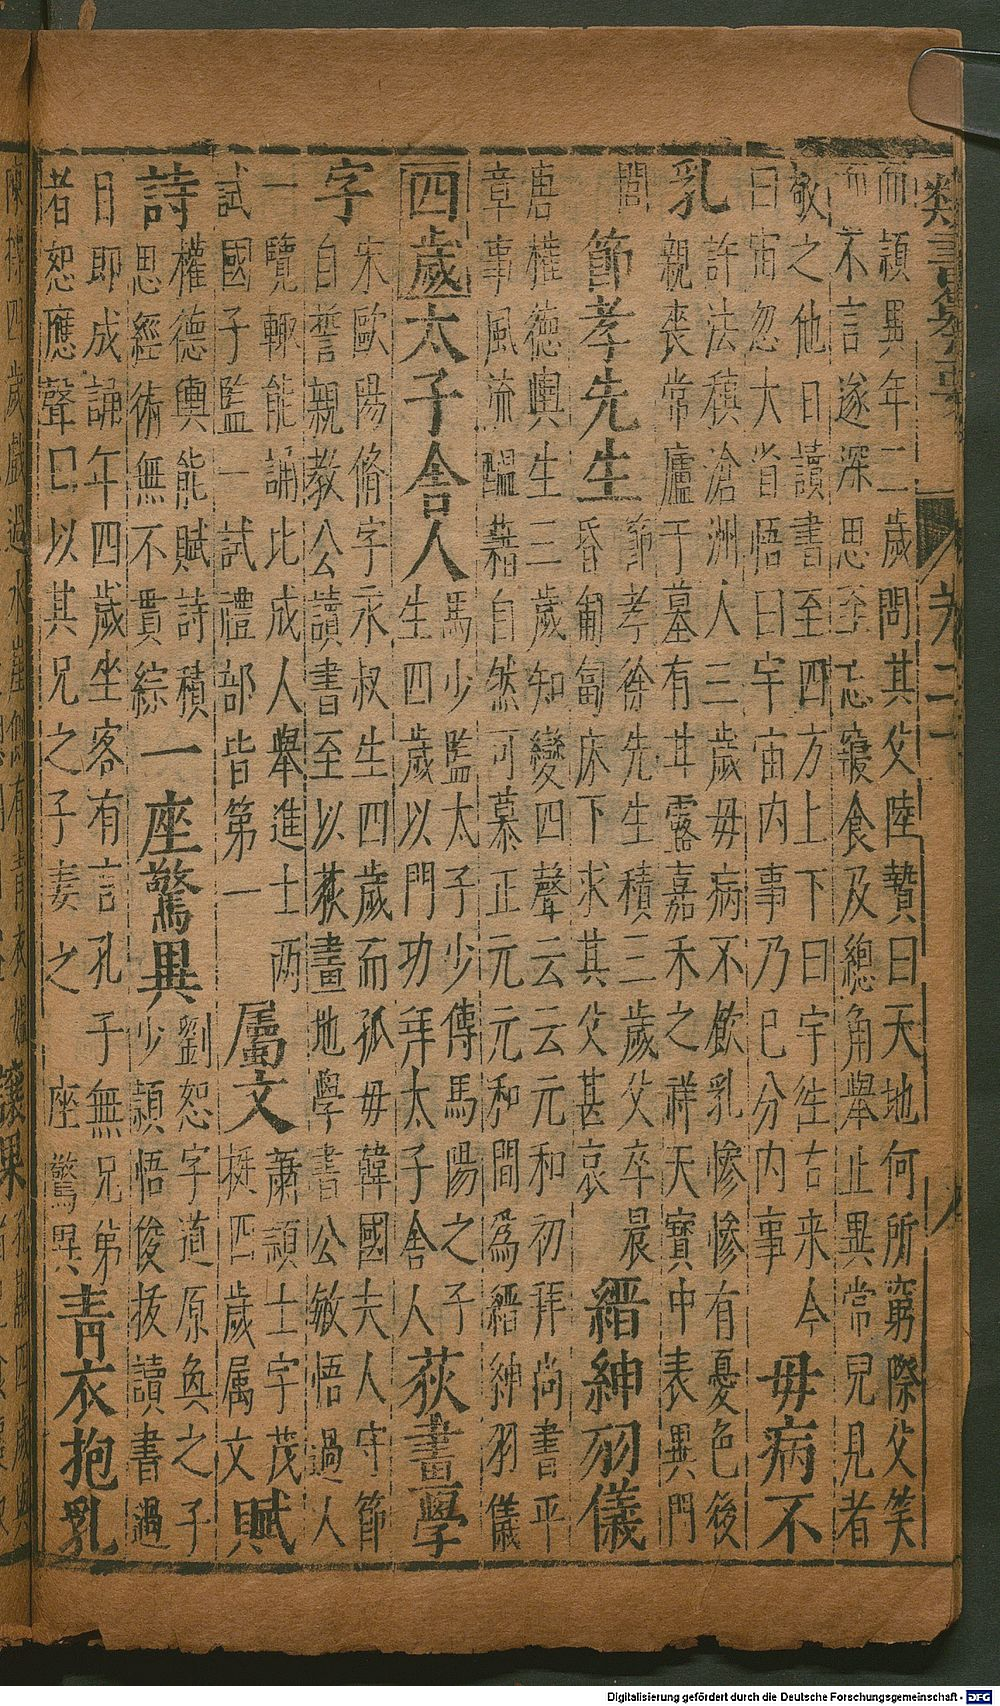 而頴異年二歲問其父陸贄曰天地何所窮際父笑
而不言遂深思至忘寢食及總角舉止異常兒見者
敬之他日讀書至四方上下曰宇徃古来今
曰宙忽大省悟曰宇宙内事乃已分内事
毋病不
乳
許法稹滄洲人三歲毋病不飲乳慘慘有憂色後
親喪常廬于墓有甘露嘉禾之祥天寳中表異門
閭
節孝先生
節孝徐先生積三歲父卒晨
昏匍匐床下求其父甚哀
縉紳羽儀
唐權德輿生三歲知變四聲云云元和初拜尚書平
章事風流醖藉自然可慕正元元和間為縉紳羽儀
四歲太子舍人
馬少監太子少傅馬陽之子
生四歲以門功年太子舍人
荻畫學
字
宋歐陽脩字永叔生四歲而孤毋韓國夫人守節
自誓親教公讀書至以荻畫地學書公敏悟過人
一覽輙能誦比成人舉進士两
試國子監一試禮部皆第一
屬文
蕭頴士字茂
挺四歲属文
賦
詩
權德輿能賦詩積
思經術無不貫綜
一座驚異
劉恕字道原奐之子
少頴悟俊拔讀書過
目即成誦年四歲坐客有言孔子無兄弟
者恕應聲曰以其兄之子妻之 座驚異
青衣抱乳
卷二
Digitalisierung gefördert durch die Deutsche Forschungsgemeinschaft - DFG